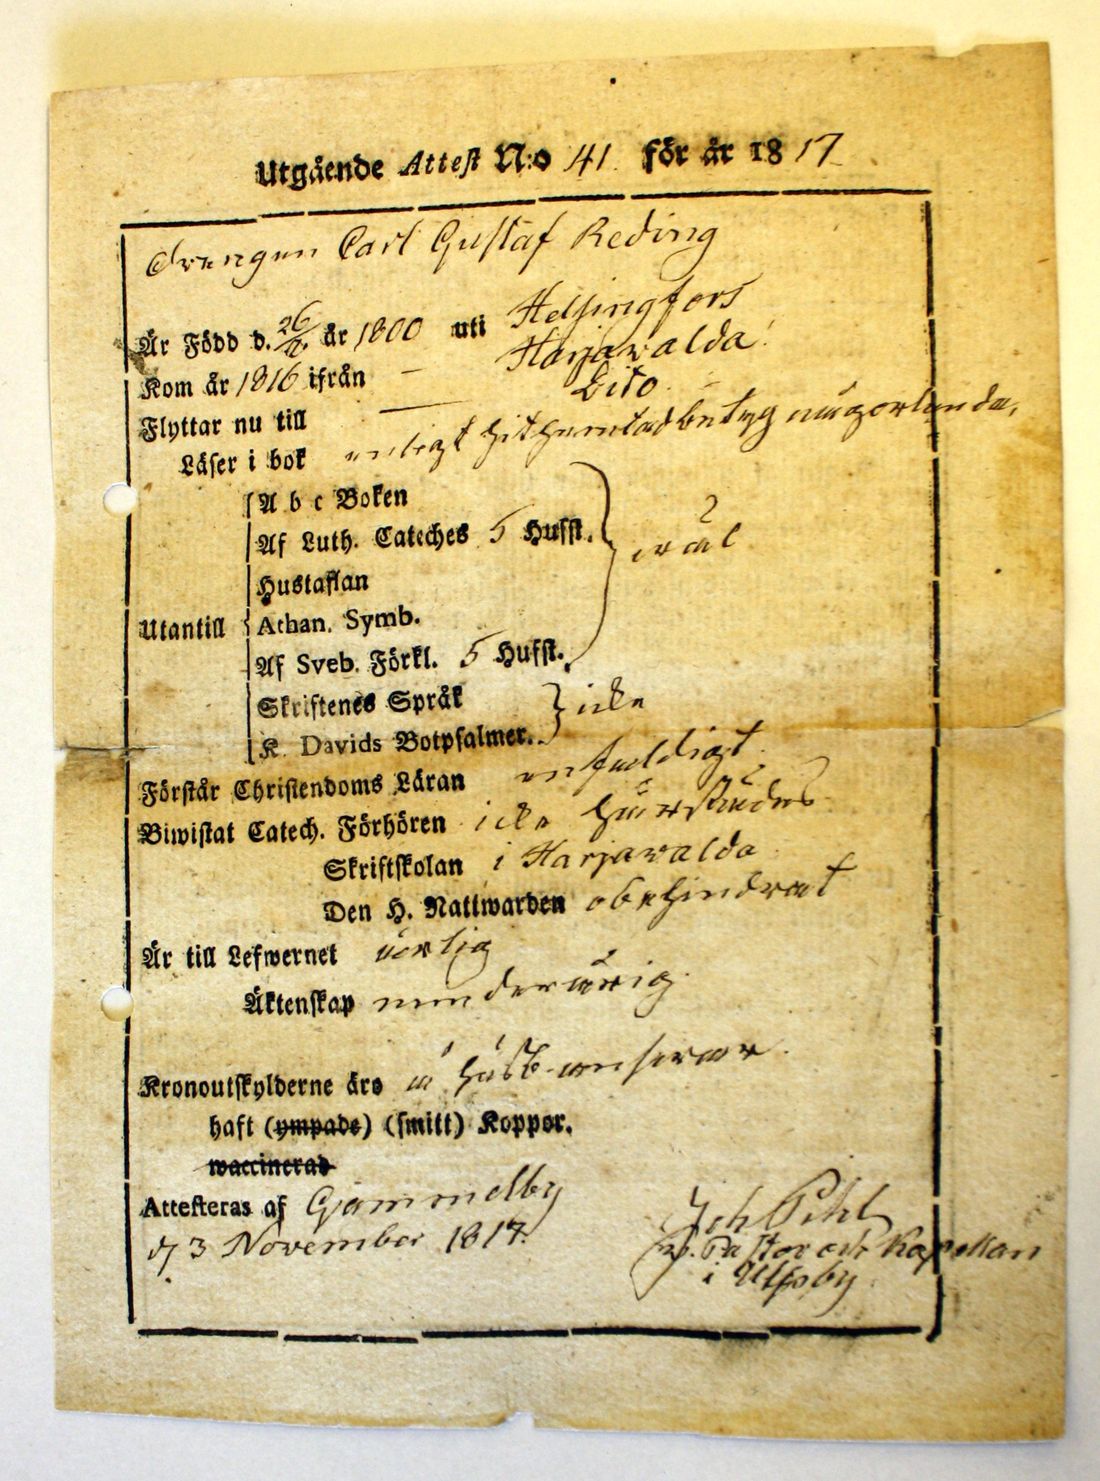 Utgående Attest N:o 41 för år 1817
Drengen Carl Gustaf Reding
Är Född d. 26/11. år 1800 uti Helsingfors
Kom år 1816 ifrån – Harjawalda
Flyttar nu till — Eito
Läser i bok enligt hit hemtad betyg någorlunda,
A b c Boken
Af Luth. Cateches 5 Hufst.
Hustaflan
wäl
Utantill Athan. Symb.
Af Sveb. Förkl. 5 Hufst.
Skriftenes Språk
icke
K. Davids Botpsalmer.
Förstår Christendoms Läran enfaldigt.
Biwistat Catech. Förhören icke härstädes
Skriftskolan i Harjawalda
Den H. Nattwarden obehindrat
Är till Lefwernet ärlig
Äktenskap minderårig.
Kronoutskylderne äro
haft (ympade) (smitt) Koppor.
waccinerad
Attesteras af Gammelby
d 3 November 1817.
Joh Pihl
Pastor och Kapellan
i Ulfsby